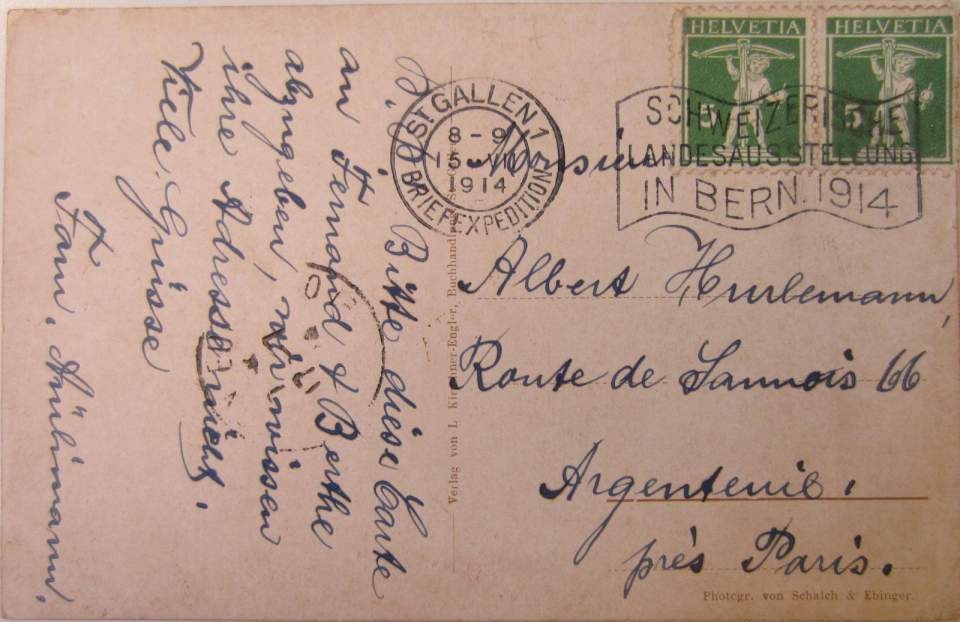 HELVETIA HELVETIA
5 5
ST GALLEN 1
8-9
15 VII
1914
BRIEFEXPEDITION
SCHWEIZERISCHE
LANDESAUSSTELLUNG
IN BERN. 1914
Monsieur
Albert Hurlemann,
Route de Sannois 66
Argenteuil.
près Paris.
Bitte diese Carte
an Fernand & Berthe
abzugeben, wir wissen
ihre Adresse nicht.
Viele Grüsse
Fam.
Verlag von L Kirschner-Engler, Buchhandlung
Photogr. von Schalch & Ebinger.